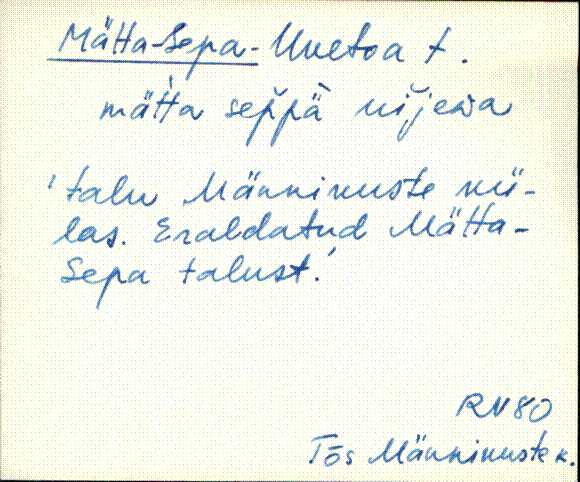 Mätta-Sepa-Uuetoa t.
mät̀ta sep̌pä uǐjewa
'talu Männikuste kü-
las. Eraldatud Mätta-
Sepa talust.'
RN 80
Tõs Männikuste k.